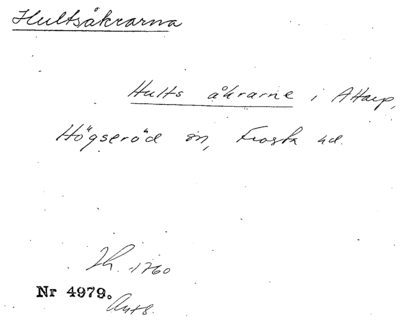 Hultsåkrarna
Hults åkrarne i Attarp,
Högseröd sn, Frosta hd.
1760
Nr 4979.